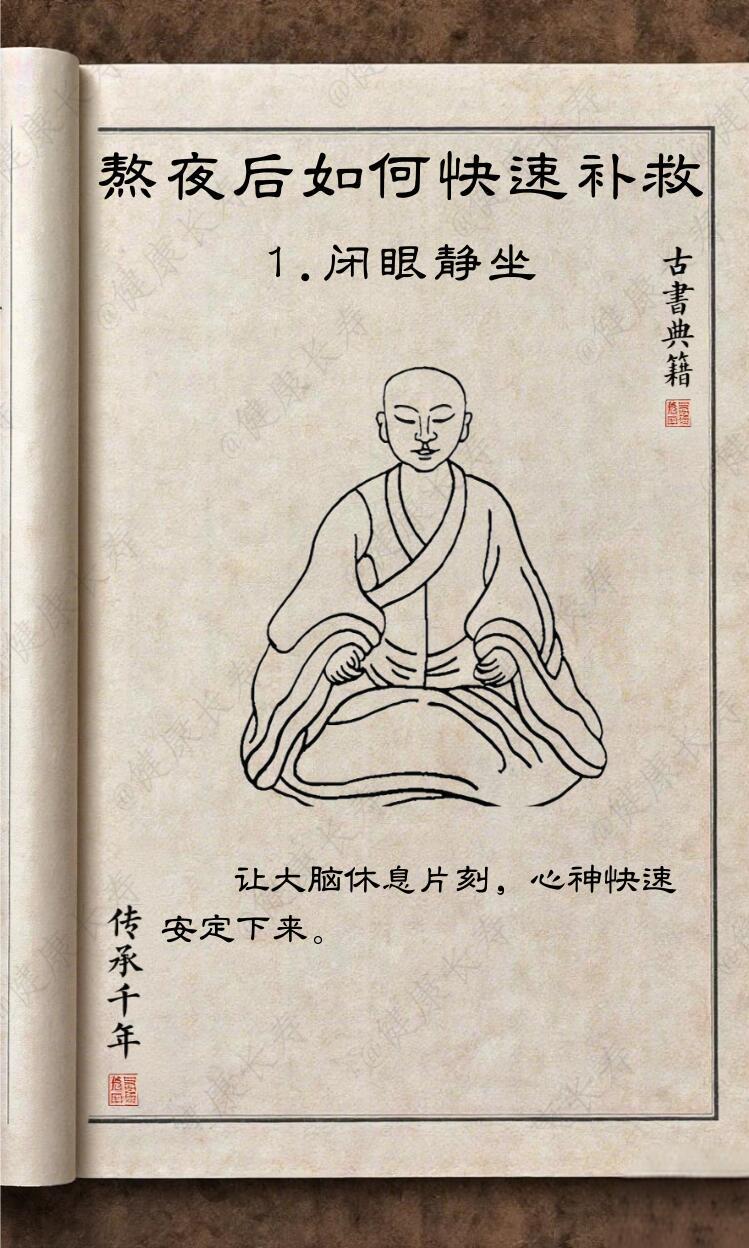 熬夜后如何快速补救
1.闭眼静坐
古書典籍
让大脑休息片刻，心神快速
安定下来。
传承千年
@健康长寿